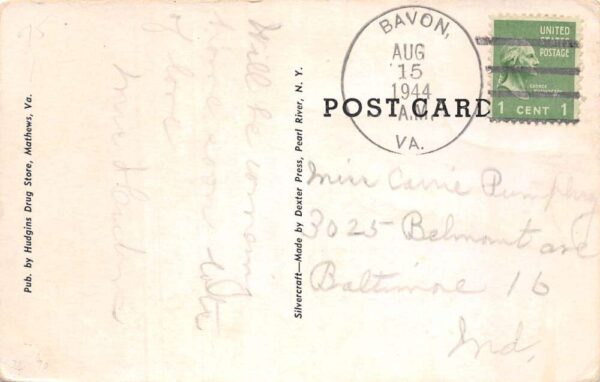 BAVON,
AUG
15
1944
A.M.
VA.
UNITED
STATES
POSTAGE
GEORGE
WASHINGTON
1 CENT 1
POST CARD
Miss Carrie Pumphry
3025 Belmont ave
Baltimore 16
Md.
Will be coming
love
Pub. by Hudgins Drug Store, Mathews, Va.
Silvercraft—Made by Dexter Press, Pearl River, N. Y.